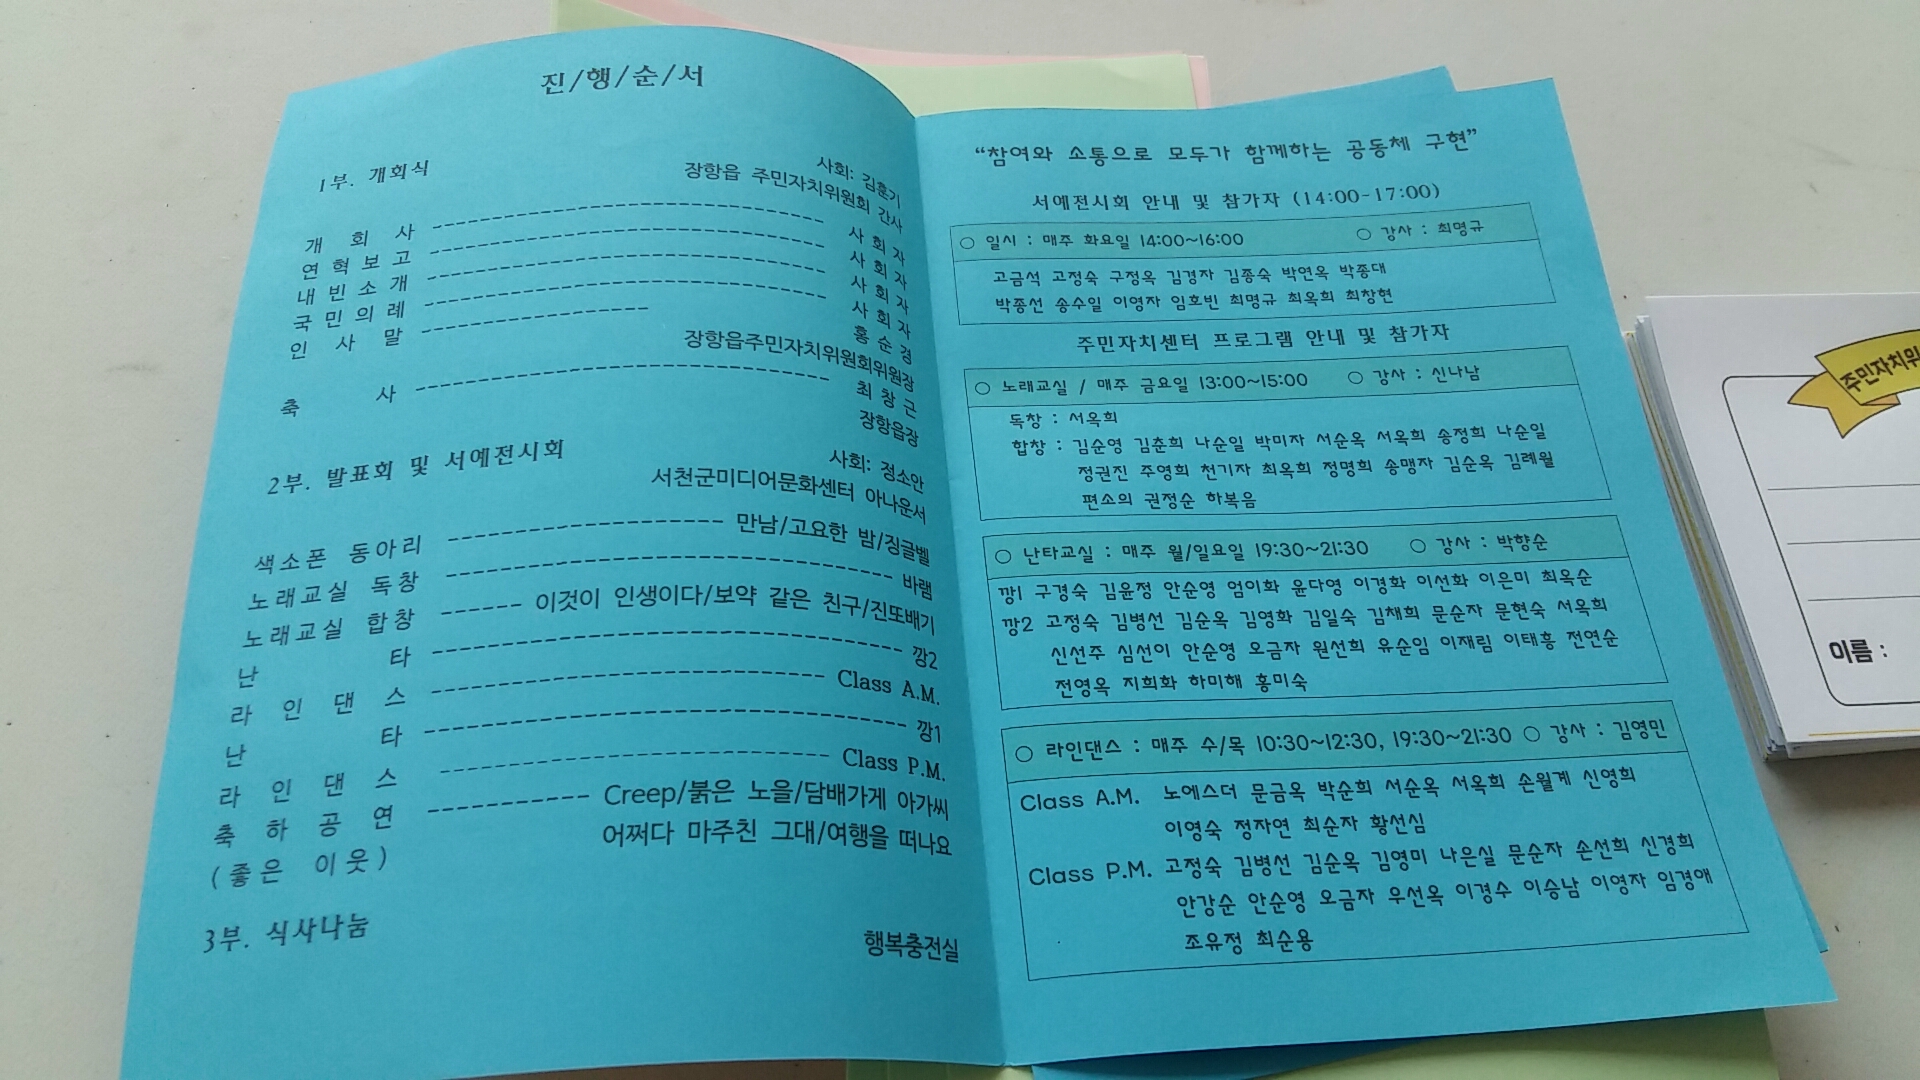 진/행/순/서
1부. 개회식
사회: 김훈기
장항읍 주민자치위원회 간사
개 회 사 ---------- 사 회 자
연 혁 보 고 ---------- 사 회 자
내 빈 소 개 ---------- 사 회 자
국 민 의 례 ---------- 사 회 자
인 사 말 ---------- 홍 순 경
장항읍주민자치위원회위원장
축 사 ---------- 최 창 근
장항읍장
2부. 발표회 및 서예전시회
사회: 정소안
서천군미디어문화센터 아나운서
색소폰 동아리 ---------- 만남/고요한 밤/징글벨
노래교실 독창 ---------- 바램
노래교실 합창 ------ 이것이 인생이다/보약 같은 친구/진또배기
난 타 ---------- 깡2
라 인 댄 스 ---------- Class A.M.
난 타 ---------- 깡1
라 인 댄 스 ---------- Class P.M.
축 하 공 연 ---------- Creep/붉은 노을/담배가게 아가씨
(좋은 이웃) 어쩌다 마주친 그대/여행을 떠나요
3부. 식사나눔
행복충전실
“참여와 소통으로 모두가 함께하는 공동체 구현”
서예전시회 안내 및 참가자 (14:00-17:00)
○ 일시 : 매주 화요일 14:00~16:00 ○ 강사 : 최명규
고금석 고정숙 구정옥 김경자 김종숙 박연옥 박종대
박종선 송수일 이영자 임호빈 최명규 최옥희 최창현
주민자치센터 프로그램 안내 및 참가자
○ 노래교실 / 매주 금요일 13:00~15:00 ○ 강사 : 신나남
독창 : 서옥희
합창 : 김순영 김춘희 나순일 박미자 서순옥 서옥희 송정희 나순일
정권진 주영희 천기자 최옥희 정명희 송맹자 김순옥 김례월
편소의 권정순 하복음
○ 난타교실 : 매주 월/일요일 19:30~21:30 ○ 강사 : 박향순
깡1 구경숙 김윤정 안순영 엄이화 윤다영 이경화 이선화 이은미 최옥순
깡2 고정숙 김병선 김순옥 김영화 김일숙 김채희 문순자 문현숙 서옥희
신선주 심선이 안순영 오금자 원선희 유순임 이재림 이태흥 전연순
전영옥 지희화 하미해 홍미숙
○ 라인댄스 : 매주 수/목 10:30~12:30, 19:30~21:30 ○ 강사 : 김영민
Class A.M. 노에스더 문금옥 박순희 서순옥 서옥희 손월계 신영희
이영숙 정자연 최순자 황선심
Class P.M. 고정숙 김병선 김순옥 김영미 나은실 문순자 손선희 신경희
안강순 안순영 오금자 우선옥 이경수 이승남 이영자 임경애
조유정 최순용
주민자치위
이름 :